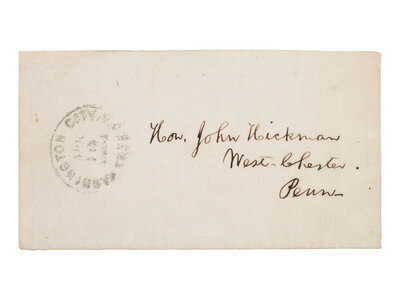 WASHINGTON CITY, D.C.
FREE
Hon. John Hickman
West-Chester.
Penn